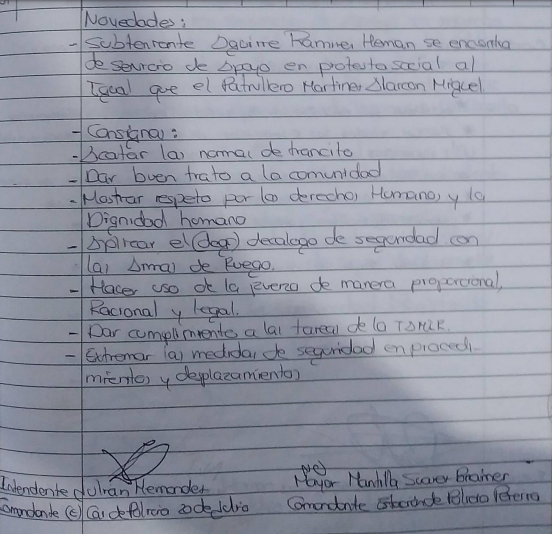 Novedades:
- Subteniente Aguirre Ramirez Hernan se encuentra
de servicio de Apoyo en protesta social al
Igual que el Patrullero Martinez Alarcon Miguel
- Consignas:
- Acatar las normas de trancito
- Dar buen trato a la comunidad
- Mostrar respeto por los derechos Humanos y la
Dignidad humano
- Aplicar el (deca) decalogo de seguridad con
las Armas de Fuego.
- Hacer uso de la fuerza de manera proporcional,
Racional y legal.
- Dar cumplimiento a las tareas de la
- Extremar las medidas de seguridad en procedi-
mientos y desplazamientos
Intendente Julian Hernandez
Mayor Mantilla Brainer
Comandante (e) Cai de Policia 20 de Julio
Comandante Estacion de Policia Pereira